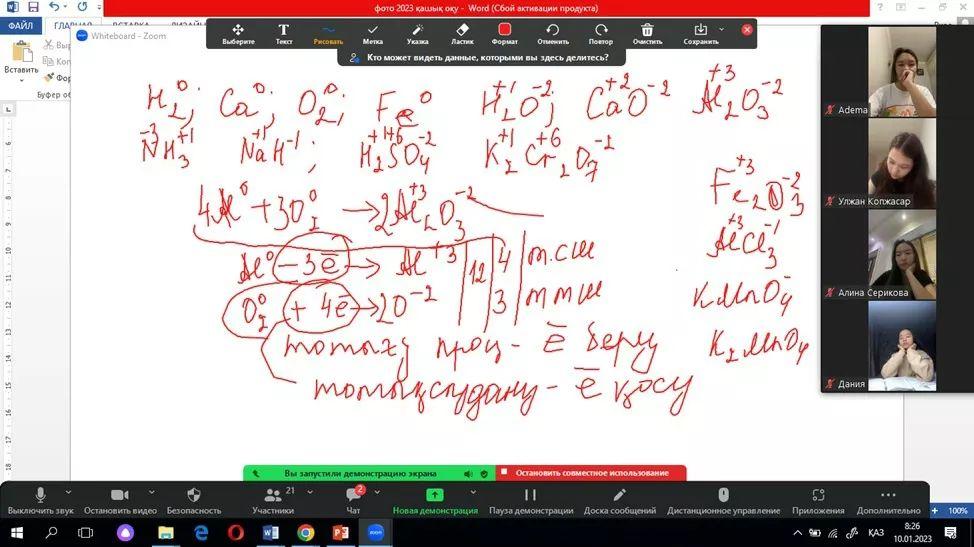 фото 2023 қашық оқу - Word (Сбой активации продукта)
ФАЙЛ
ГЛАВНАЯ
ВСТАВКА
Вставить
Whiteboard - Zoom
Выберите Текст Рисовать Метка Указка Ластик Формат Отменить Повтор Очистить Сохранить
Кто может видеть данные, которыми вы здесь делитесь?
H₂⁰; Ca⁰; O₂⁰; Fe⁰ H₂⁺¹O⁻²; Ca⁺²O⁻² Al₂⁺³O₃⁻²
N⁻³H₃⁺¹ Na⁺¹H⁻¹; H₂⁺¹S⁺⁶O₄⁻² K₂⁺¹Cr₂⁺⁶O₇⁻²
Fe₂⁺³O₃⁻²
4Al⁰ + 3O₂⁰ → 2Al₂⁺³O₃⁻²
Al⁺³Cl₃⁻¹
Al⁰ – 3ē → Al⁺³ | 12 | 4 | т.сш
O₂⁰ + 4ē → 2O⁻² 3 | ттш
KMnO₄⁻
тотығу проц - ē беру
K₂MnO₄
тотықсыздану - ē қосу
Adema
Улжан Копжасар
Алина Серикова
Дания
Вы запустили демонстрацию экрана
Остановить совместное использование
Выключить звук Остановить видео Безопасность Участники 21 Чат 2 Новая демонстрация Пауза демонстрации Доска сообщений Дистанционное управление Приложения Дополнительно
100%
ҚАЗ
8:26
10.01.2023